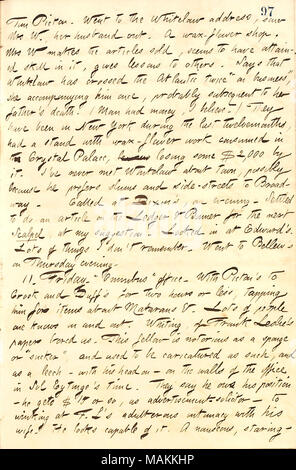 97
Tim Picton. Went to the Whitelaw address, saw
Mrs W, her husband out. A wax-flower shop.
Mrs W makes the articles sold, seems to have attain-
ed skill in it, gives lessons to others. Says that
Whitelaw has crossed the Atlantic twice "on business,"
she accompanying him once, probably subsequent to her
father's death. (Man had money I believe.) They
have been in New York during the last twelvemonths,
had a stand with wax-flower work consumed in
the Crystal Palace, losing some $2,000 by
it. I've never met Whitelaw about town, possibly
because he prefers slums and side-streets to Broad-
way. Called at Dixon's, an evening. Settled
to do an article on Ledger Bonner for the next
Scalpel at my suggestion. Looked in at Edward's.
Lots of things I don't remember. Went to Pellew's
on Thursday evening.
11. Friday. Omnibus office. With Picton to
Crook and Duff's for two hours or less, tapping
him for items about Matanzas &c. Lots of people
one knows in and out. Whiting, of Frank Leslie's
papers bored us. This fellow is notorious as a sponge
or "sucker", and used to be caricatured as such, and
as a leech, with his head on, on the walls of the office
in Sol Eytinge's time. They say he owes his position
he gets $10 or so, as advertisement-solicitor to
winking at F. L's adulterous intimacy with his
wife! He looks capable of it. A nauseous, staring-
alamy
MAKKHP